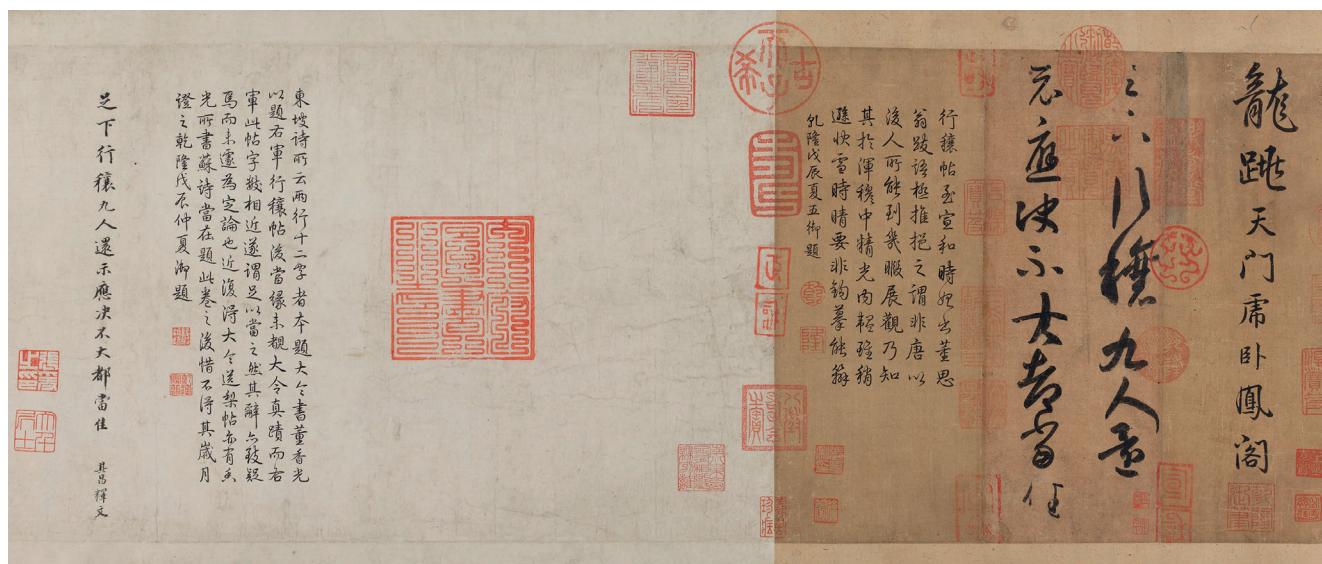 龍跳天門虎卧鳳閣
足下行穰九人還
示應決不大都當佳
行穰帖至宣和時始出董思
翁跋語極推挹之謂非唐以
後人所能到幾暇展觀乃知
其於渾穆中精光內韞雖稍
遜快雪時晴要非鈎摹能辦
乾隆戊辰夏五御題
乾隆
古希天子
壽
政和
八徵耄念之寶
內府圖書之印
東坡詩所云兩行十二字者本題大令書董香光
以題右軍行穰帖後當緣未覩大令真蹟而右
軍此帖字數相近遂謂足以當之然其辭亦致疑
焉而未遽為定論也近復得大令送梨帖亦有香
光所書蘇詩當在題此卷之後惜不得其歲月
證之乾隆戊辰仲夏御題
足下行穰九人還示應決不大都當佳 其昌釋文